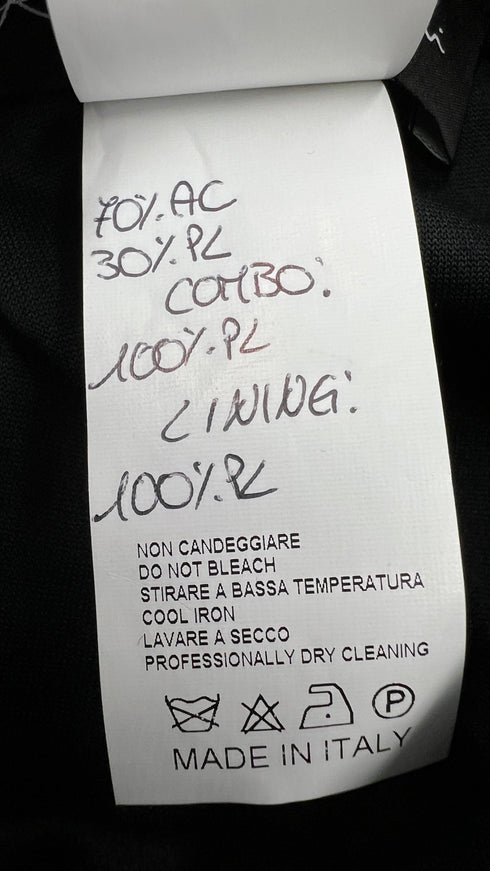 70% AC
30% PL
COMBO:
100% PL
LINING:
100% PL
NON CANDEGGIARE
DO NOT BLEACH
STIRARE A BASSA TEMPERATURA
COOL IRON
LAVARE A SECCO
PROFESSIONALLY DRY CLEANING
P
MADE IN ITALY